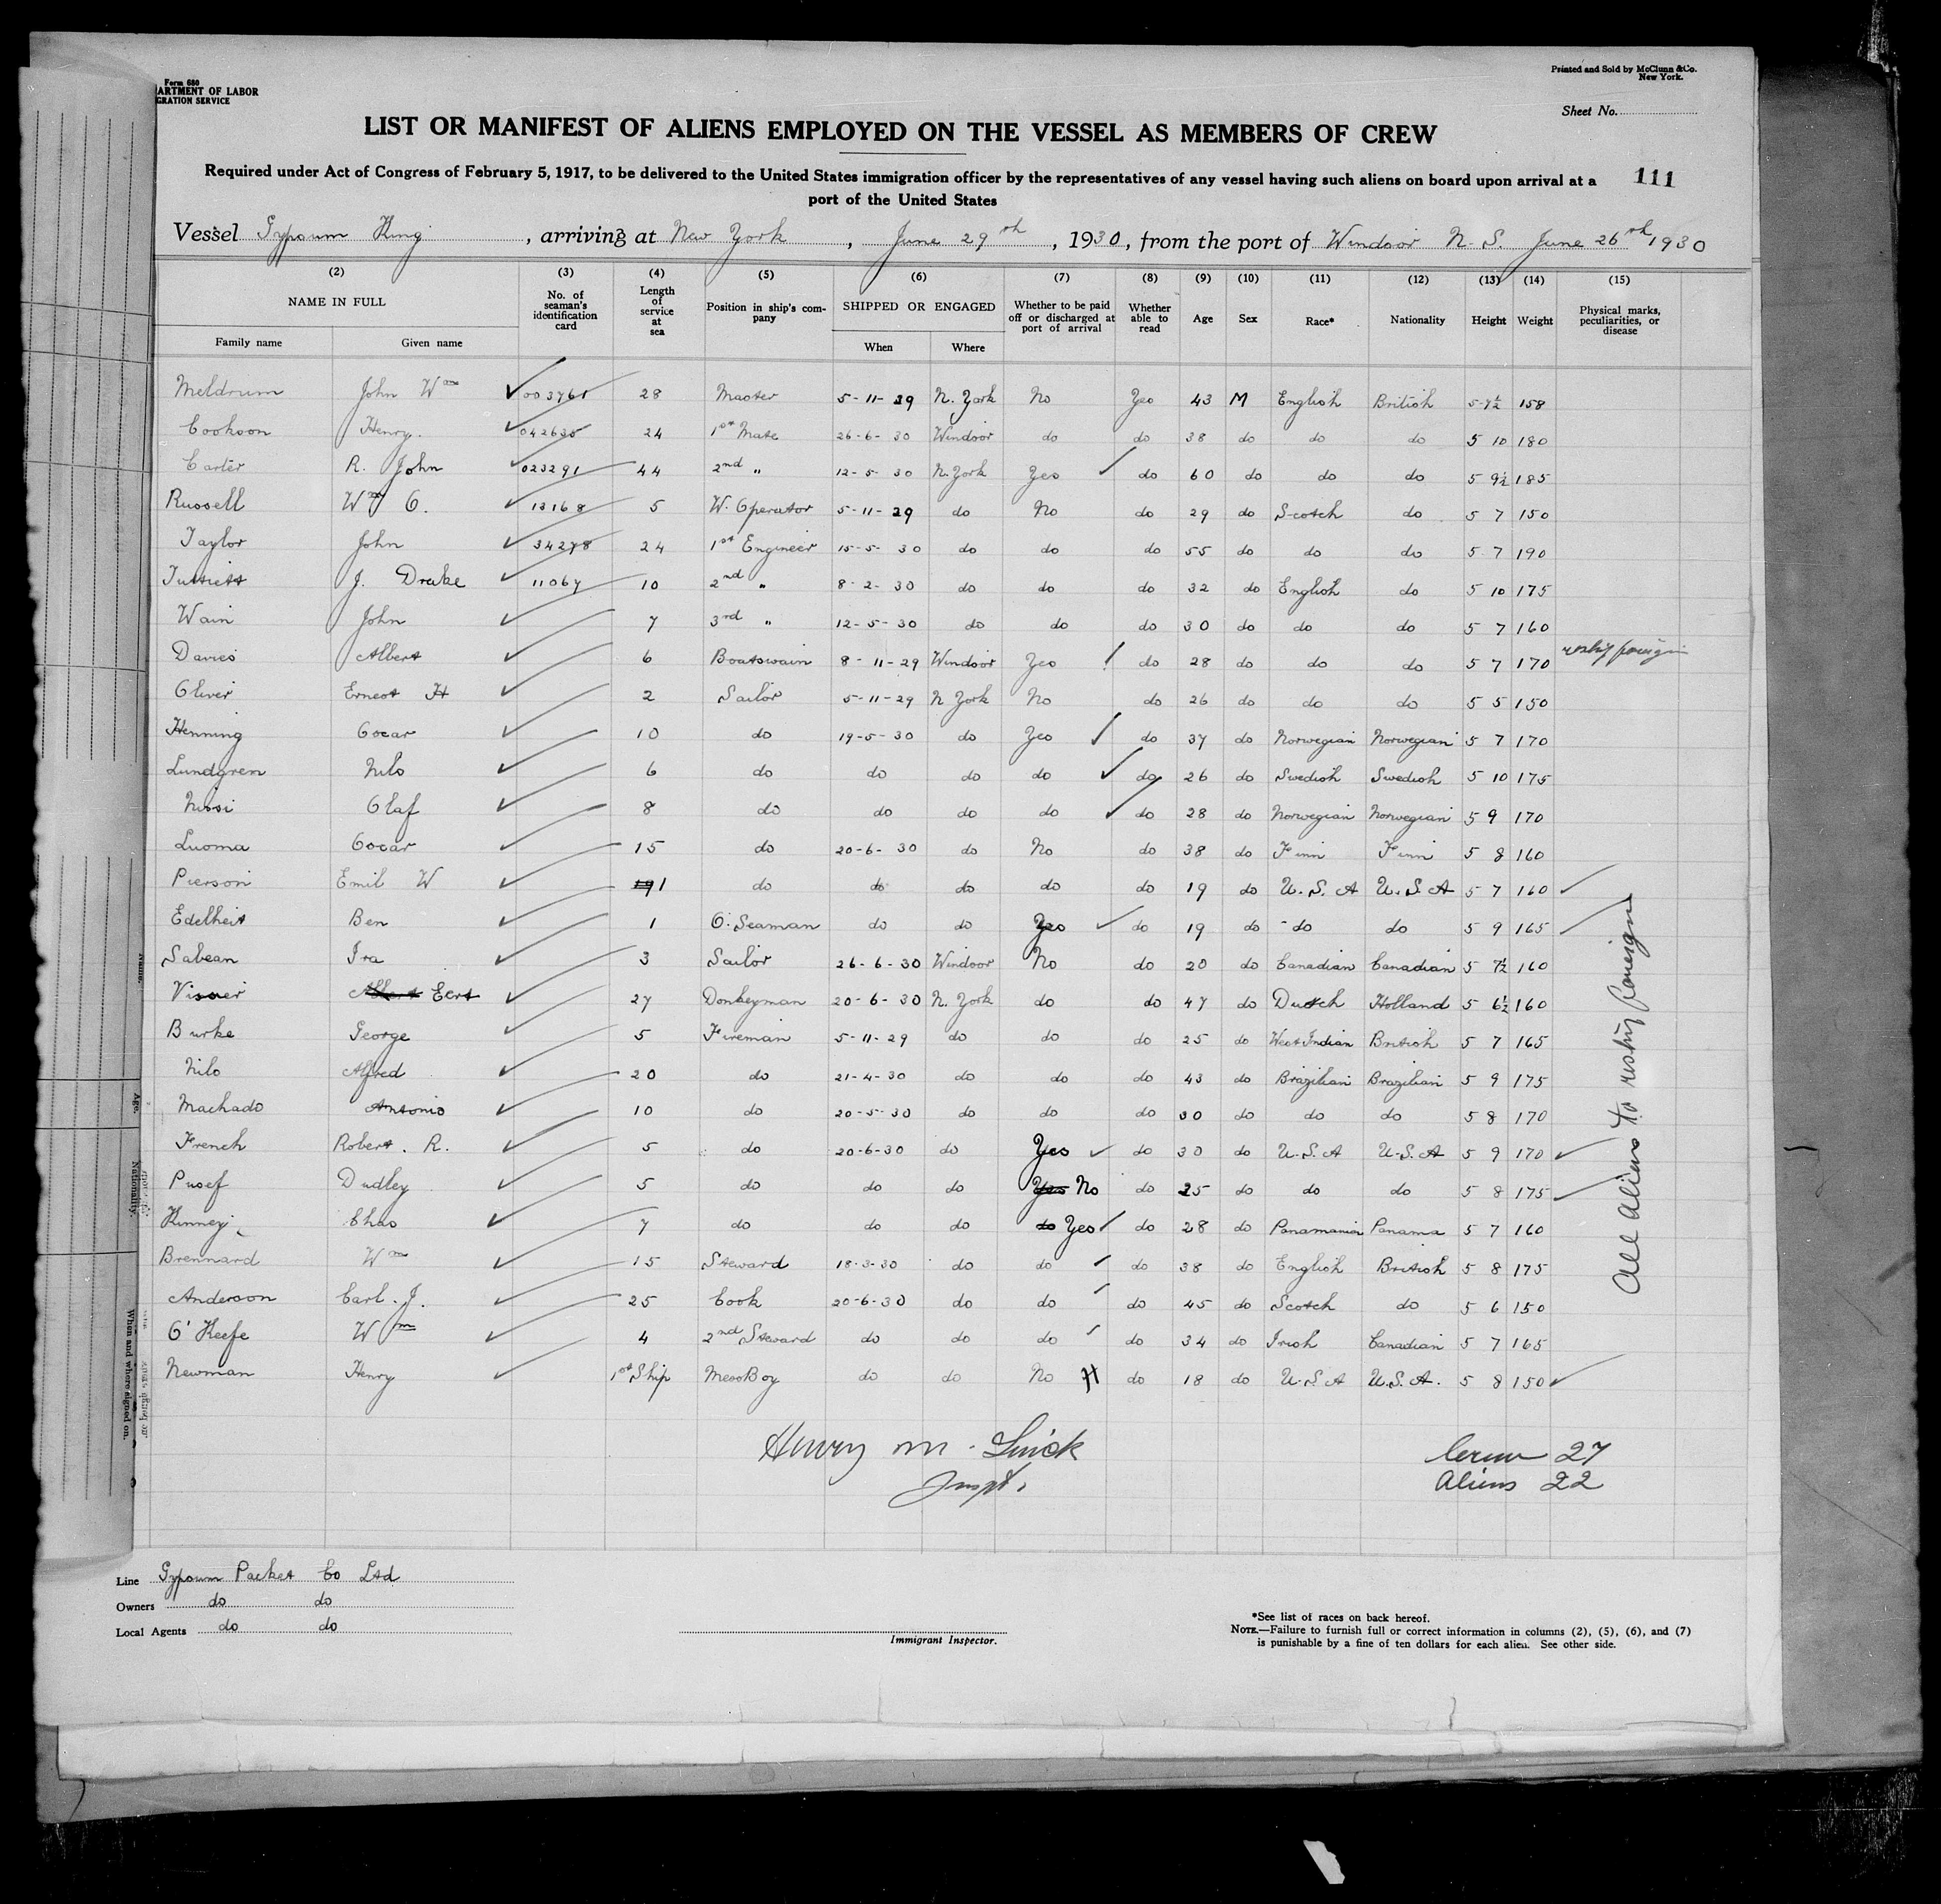 Form 680
ARTMENT OF LABOR
GRATION SERVICE
Printed and Sold by McClunn & Co.
New York.
Sheet No.
LIST OR MANIFEST OF ALIENS EMPLOYED ON THE VESSEL AS MEMBERS OF CREW
Required under Act of Congress of February 5, 1917, to be delivered to the United States immigration officer by the representatives of any vessel having such aliens on board upon arrival at a
port of the United States
111
Vessel Gypsum King, arriving at New York, June 29th, 1930, from the port of Windsor N. S. June 26th 1930
(2) (3) (4) (5) (6) (7) (8) (9) (10) (11) (12) (13) (14) (15)
NAME IN FULL No. of seaman's identification card Length of service at sea Position in ship's company SHIPPED OR ENGAGED Whether to be paid off or discharged at port of arrival Whether able to read Age Sex Race* Nationality Height Weight Physical marks, peculiarities, or disease
Family name Given name When Where
Meldrum John Wm 003761 28 Master 5-11-29 N. York No Yes 43 M English British 5-7½ 158
Cookson Henry. 042635 24 1st Mate 26-6-30 Windsor do do 38 do do do 5 10 180
Carter R. John 023291 44 2nd " 12-5-30 N. York Yes do 60 do do do 5 9½ 185
Russell Wm O. 13168 5 W. Operator 5-11-29 do No do 29 do Scotch do 5 7 150
Taylor John 34278 24 1st Engineer 15-5-30 do do do 55 do do do 5 7 190
J. Drake 11067 10 2nd " 8-2-30 do do do 32 do English do 5 10 175
Wain John 7 3rd " 12-5-30 do do do 30 do do do 5 7 160
Davies Albert 6 Boatswain 8-11-29 Windsor Yes do 28 do do do 5 7 170 reship foreign
Oliver Ernest H 2 Sailor 5-11-29 N York No do 26 do do do 5 5 150
Henning Oscar 10 do 19-5-30 do Yes do 37 do Norwegian Norwegian 5 7 170
Lundgren Nils 6 do do do do do 26 do Swedish Swedish 5 10 175
Nissi Olaf 8 do do do do do 28 do Norwegian Norwegian 5 9 170
Luoma Oscar 15 do 20-6-30 do No do 38 do Finn Finn 5 8 160
Pierson Emil W 1 do do do do do 19 do U.S.A U.S.A 5 7 160
Edelheit Ben 1 O. Seaman do do Yes do 19 do do do 5 9 165
Sabean Ira 3 Sailor 26-6-30 Windsor No do 20 do Canadian Canadian 5 7½ 160
Visser Albert Eert 27 Donkeyman 20-6-30 N. York do do 47 do Dutch Holland 5 6½ 160
Burke George 5 Fireman 5-11-29 do do do 25 do West Indian British 5 7 165
Nilo Alfred 20 do 21-4-30 do do do 43 do Brazilian Brazilian 5 9 175
Machado Antonio 10 do 20-5-30 do do do 30 do do do 5 8 170
French Robert. R. 5 do 20-6-30 do Yes do 30 do U.S.A U.S.A 5 9 170
Pusef Dudley 5 do do do Yes No do 25 do do do 5 8 175
Kinney Chas 7 do do do do Yes do 28 do Panamanian Panama 5 7 160
Brennard Wm 15 Steward 18-3-30 do do do 38 do English British 5 8 175
Anderson Carl. J. 25 Cook 20-6-30 do do do 45 do Scotch do 5 6 150
O'Keefe Wm 4 2nd Steward do do do do 34 do Irish Canadian 5 7 165
Newman Henry 1st Ship MessBoy do do No H do 18 do U.S.A U.S.A. 5 8 150
All Aliens to reship foreign
Henry M.
Inspt.
Crew 27
Aliens 22
Line Gypsum Packet Co Ltd
Owners do do
Local Agents do do
Immigrant Inspector.
*See list of races on back hereof.
NOTE.—Failure to furnish full or correct information in columns (2), (5), (6), and (7)
is punishable by a fine of ten dollars for each alien. See other side.
Age.
Nationality.
When and where signed on.